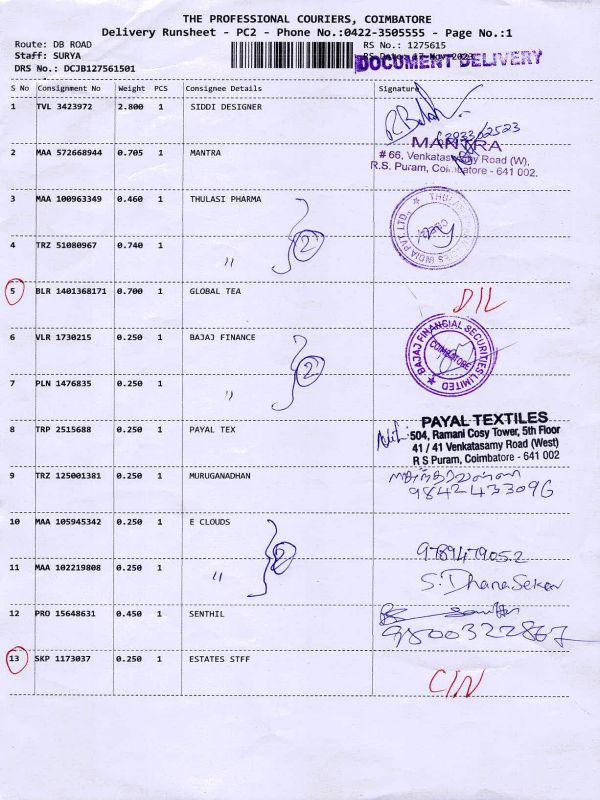 THE PROFESSIONAL COURIERS, COIMBATORE
Delivery Runsheet - PC2 - Phone No.:0422-3505555 - Page No.:1
Route: DB ROAD
RS No.: 1275615
Staff: SURYA
RS Date: 17 Nov 2023
DOCUMENT DELIVERY
DRS No.: DCJB127561501
S No Consignment No Weight PCS Consignee Details Signature
1 TVL 3423972 2.800 1 SIDDI DESIGNER
2 MAA 572668944 0.705 1 MANTRA
MANTRA
# 66, Venkatasamy Road (W),
R.S. Puram, Coimbatore - 641 002.
3 MAA 100963349 0.460 1 THULASI PHARMA
4 TRZ 51080967 0.740 1 〃
2
5 BLR 1401368171 0.700 1 GLOBAL TEA
DIL
6 VLR 1730215 0.250 1 BAJAJ FINANCE
BAJAJ FINANCIAL SECURITIES LIMITED
COIMBATORE
7 PLN 1476835 0.250 1 〃
2
8 TRP 2515688 0.250 1 PAYAL TEX
PAYAL TEXTILES
504, Ramani Cosy Tower, 5th Floor
41 / 41 Venkatasamy Road (West)
R S Puram, Coimbatore - 641 002
9 TRZ 125001381 0.250 1 MURUGANADHAN
9842433096
10 MAA 105945342 0.250 1 E CLOUDS
2
11 MAA 102219808 0.250 1 〃
S. DhanaSekar
12 PRO 15648631 0.450 1 SENTHIL
9500322867
13 SKP 1173037 0.250 1 ESTATES STFF
C/N